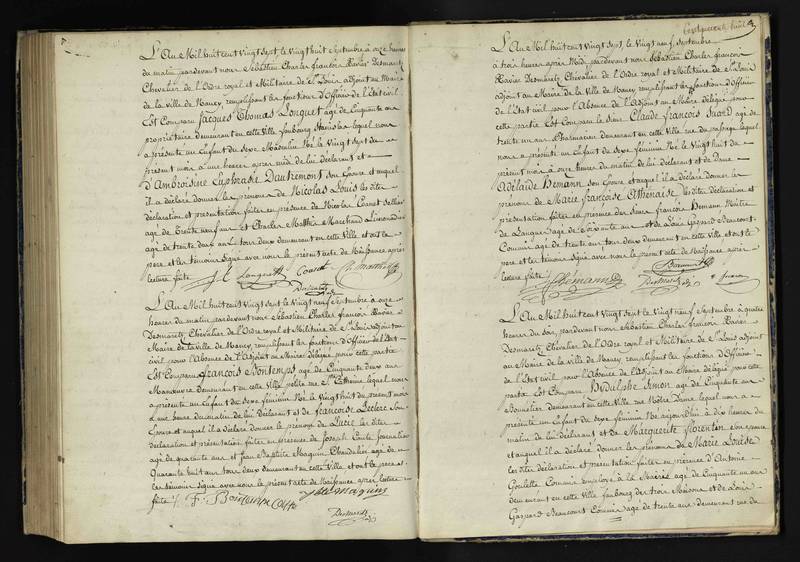 L'An Mil huit cent vingt sept, le vingt huit Septembre à onze heures
du matin, pardevant nous Sébastien Charles françois Xavier Desmaretz
Chevalier de l'Ordre royal et Militaire de St Louis adjoint au Maire
de la ville de Nancy, remplissant les fonctions d'Officier de l'état civil
Est Comparu Jacques Thomas Longuet agé de Cinquante ans
propriétaire demeurant en cette Ville faubourg Stanislas lequel nous
a présenté un Enfant du Sexe Masculin Né le Vingt Sept du
présent mois à une heure après midi de lui déclarant et
d'Ambroisine Euphrasie Dautremont son Epouse et auquel
il a déclaré donner les prénoms de Nicolas Louis les dites
déclaration et présentation faites en présence de Nicolas
agé de trente neuf ans et Charles Matthis Marchand Limonadier
agé de trente deux ans tous deux demeurant en cette ville et ont le
pere et les témoins signé avec nous le présent acte de Naissance après
lecture faite
L'An Mil huit cent vingt sept le vingt neuf Septembre à onze
heures du matin, pardevant nous Sébastien Charles françois Xavier
Desmaretz, Chevalier de l'Ordre royal et Militaire de St Louis adjoint au
Maire de la ville de Nancy, remplissant les fonctions d'Officier de l'Etat
civil pour l'Absence de l'Adjoint au Maire délégué pour cette partie
Est Comparu françois Bontemps agé de Cinquante deux ans
Manoeuvre demeurant en cette ville petite rue lequel nous
a présenté un Enfant du Sexe féminin Né le Vingt huit du présent mois
à une heure du matin de lui déclarant et de françoise Leclerc son
Epouse et auquel il a déclaré donner le prénom de Lucie les dites
déclaration et présentation faites en présence de Joseph Journalier
agé de quarante ans et Jean Baptiste Maguin agé de
Quarante huit ans tous deux demeurant en cette Ville et ont le pere et
les témoins signé avec nous le présent acte de Naissance après lecture
faite
L'An Mil huit cent vingt sept, le vingt neuf Septembre
à trois heures après Midi pardevant nous Sébastien Charles françois
Xavier Desmaretz Chevalier de l'Ordre royal et Militaire de St Louis
adjoint au Maire de la Ville de Nancy remplissant les fonctions d'Officier
de l'Etat civil pour l'Absence de l'Adjoint au Maire délégué pour
cette partie Est Comparu le Sieur Claude françois Suard agé de
trente un ans Pharmacien demeurant en cette ville rue du passage lequel
nous a présenté un Enfant du Sexe féminin Né le Vingt huit du
présent mois à onze heures du matin de lui déclarant et de Dame
Adélaïde Hemann son Epouse et auquel il a déclaré donner les
prénoms de Marie françoise Athénaïse les dites déclaration et
présentation faites en présence des Sieurs françois Hemann Maître
de Langues agé de soixante ans et de Louis Gaspard Beaucourt
Commis agé de trente ans tous deux demeurant en cette Ville, et ont le
pere et les témoins signé avec nous le présent acte de Naissance après
lecture faite
L'An Mil huit cent vingt sept, le vingt neuf Septembre à quatre
heures du soir, pardevant nous Sébastien Charles françois Xavier
Desmaretz Chevalier de l'Ordre royal et Militaire de St Louis adjoint
au Maire de la ville de Nancy, remplissant les fonctions d'Officier
de l'état civil pour l'Absence de l'Adjoint au Maire délégué pour cette
partie Est Comparu Hydulphe Simon agé de Cinquante ans
Bonnetier demeurant en cette ville rue Notre Dame lequel nous a
présenté un Enfant du Sexe féminin Né aujourd'hui à dix heures du
matin de lui déclarant et de Marguerite florentin son Epouse
et auquel il a déclaré donner les prénoms de Marie Louise
les dites déclaration et présentation faites en présence d'Antoine
Goulette Commis employé à la Mairie agé de Cinquante un ans
demeurant en cette ville faubourg des trois Maisons et de Louis
Gaspard Beaucourt Commis agé de trente ans demeurant rue du